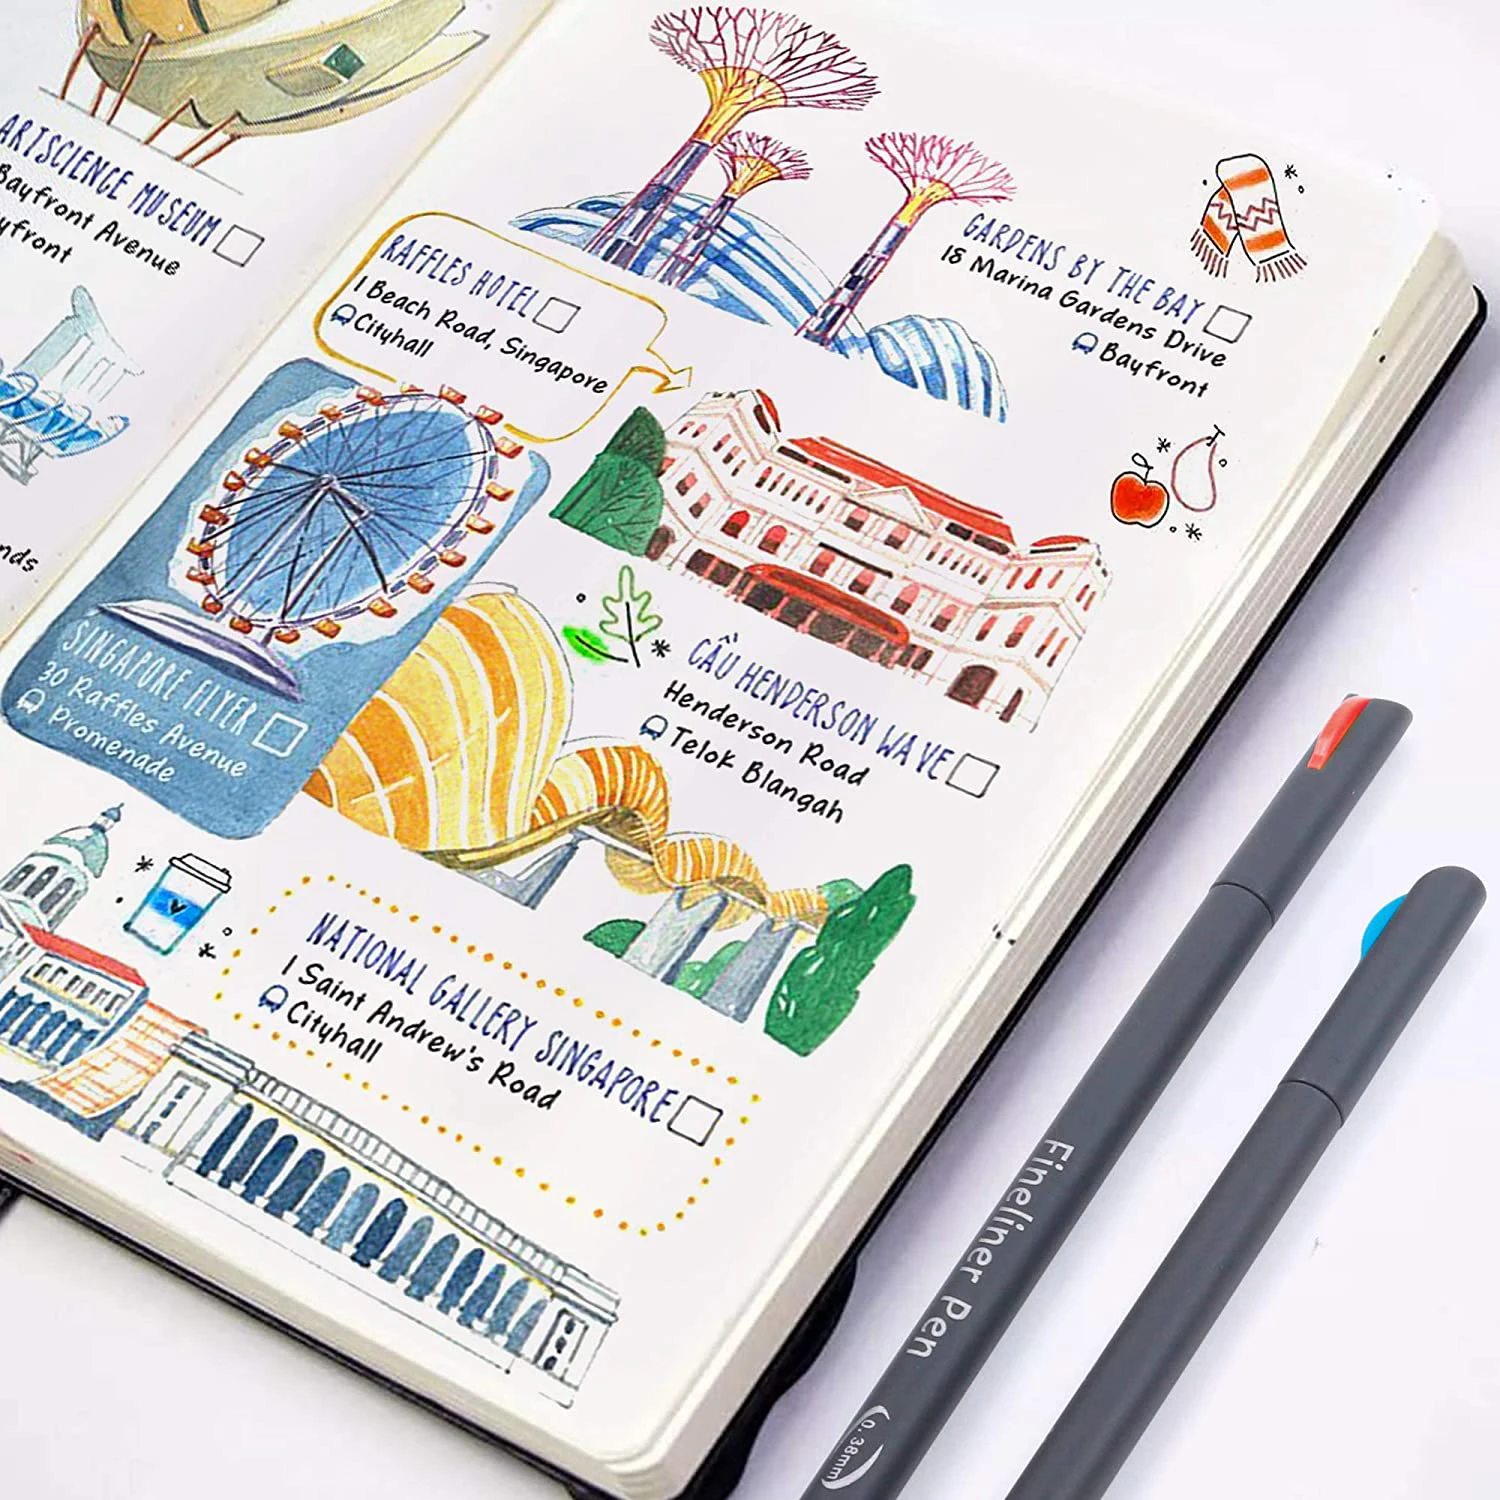 ARTSCIENCE MUSEUM
Bayfront Avenue
yfront
nds
GARDENS BY THE BAY
18 Marina Gardens Drive
Bayfront
RAFFLES HOTEL
1 Beach Road, Singapore
Cityhall
SINGAPORE FLYER
30 Raffles Avenue
Promenade
CẦU HENDERSON WAVE
Henderson Road
Telok Blangah
NATIONAL GALLERY SINGAPORE
1 Saint Andrew's Road
Cityhall
Fineliner Pen
0.38mm